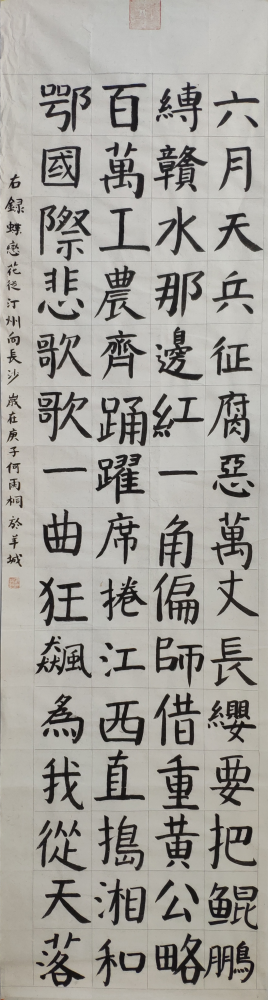 六月天兵征腐惡萬丈長纓要把鯤鵬
縛贛水那邊紅一角偏師借重黃公略
百萬工農齊踊躍席捲江西直搗湘和
鄂國際悲歌歌一曲狂飆為我從天落
右録蝶戀花從汀州向長沙歲在庚子何雨桐於羊城